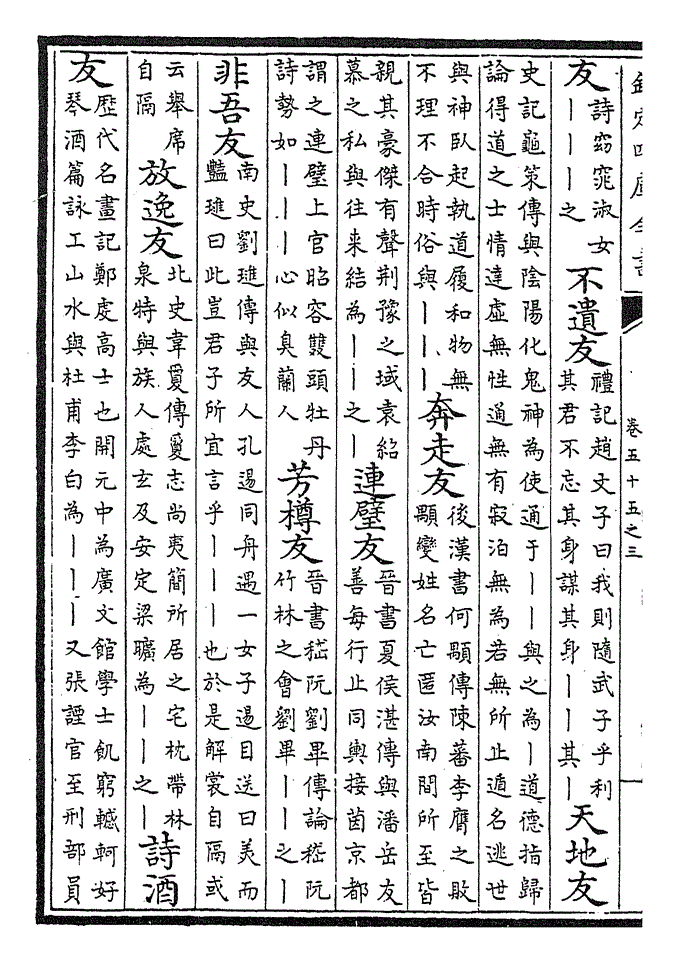 欽定四庫全書
卷五十五之三
友
詩窈窕淑女
｜｜｜｜之
不遺友
禮記趙文子曰我則隨武子乎利
其君不忘其身謀其身｜｜其｜
天地友
史記龜策傳與陰陽化鬼神為使通于｜｜與之為｜道德指歸
論得道之士情達虛無性通無有寂泊無為若無所止遁名逃世
與神臥起執道履和物無
不理不合時俗與｜｜｜
奔走友
後漢書何顒傳陳蕃李膺之敗
顒變姓名亡匿汝南間所至皆
親其豪傑有聲荆豫之域袁紹
慕之私與往来結為｜｜之｜
連璧友
晉書夏侯湛傳與潘岳友
善每行止同輿接茵京都
謂之連璧上官昭容雙頭牡丹
詩勢如｜｜｜心似臭蘭人
芳樽友
晉書嵇阮劉畢傳論嵇阮
竹林之會劉畢｜｜之｜
非吾友
南史劉璡傳與友人孔逷同舟遇一女子逷目送曰美而
豔璡曰此豈君子所宜言乎｜｜｜也於是解裳自隔或
云舉席
自隔
放逸友
北史韋敻傳敻志尚夷簡所居之宅枕帶林
泉特與族人處玄及安定梁曠為｜｜之｜
詩酒
友
歴代名畫記鄭虔高士也開元中為廣文館學士飢窮轗軻好
琴酒篇詠工山水與杜甫李白為｜｜｜又張諲官至刑部員